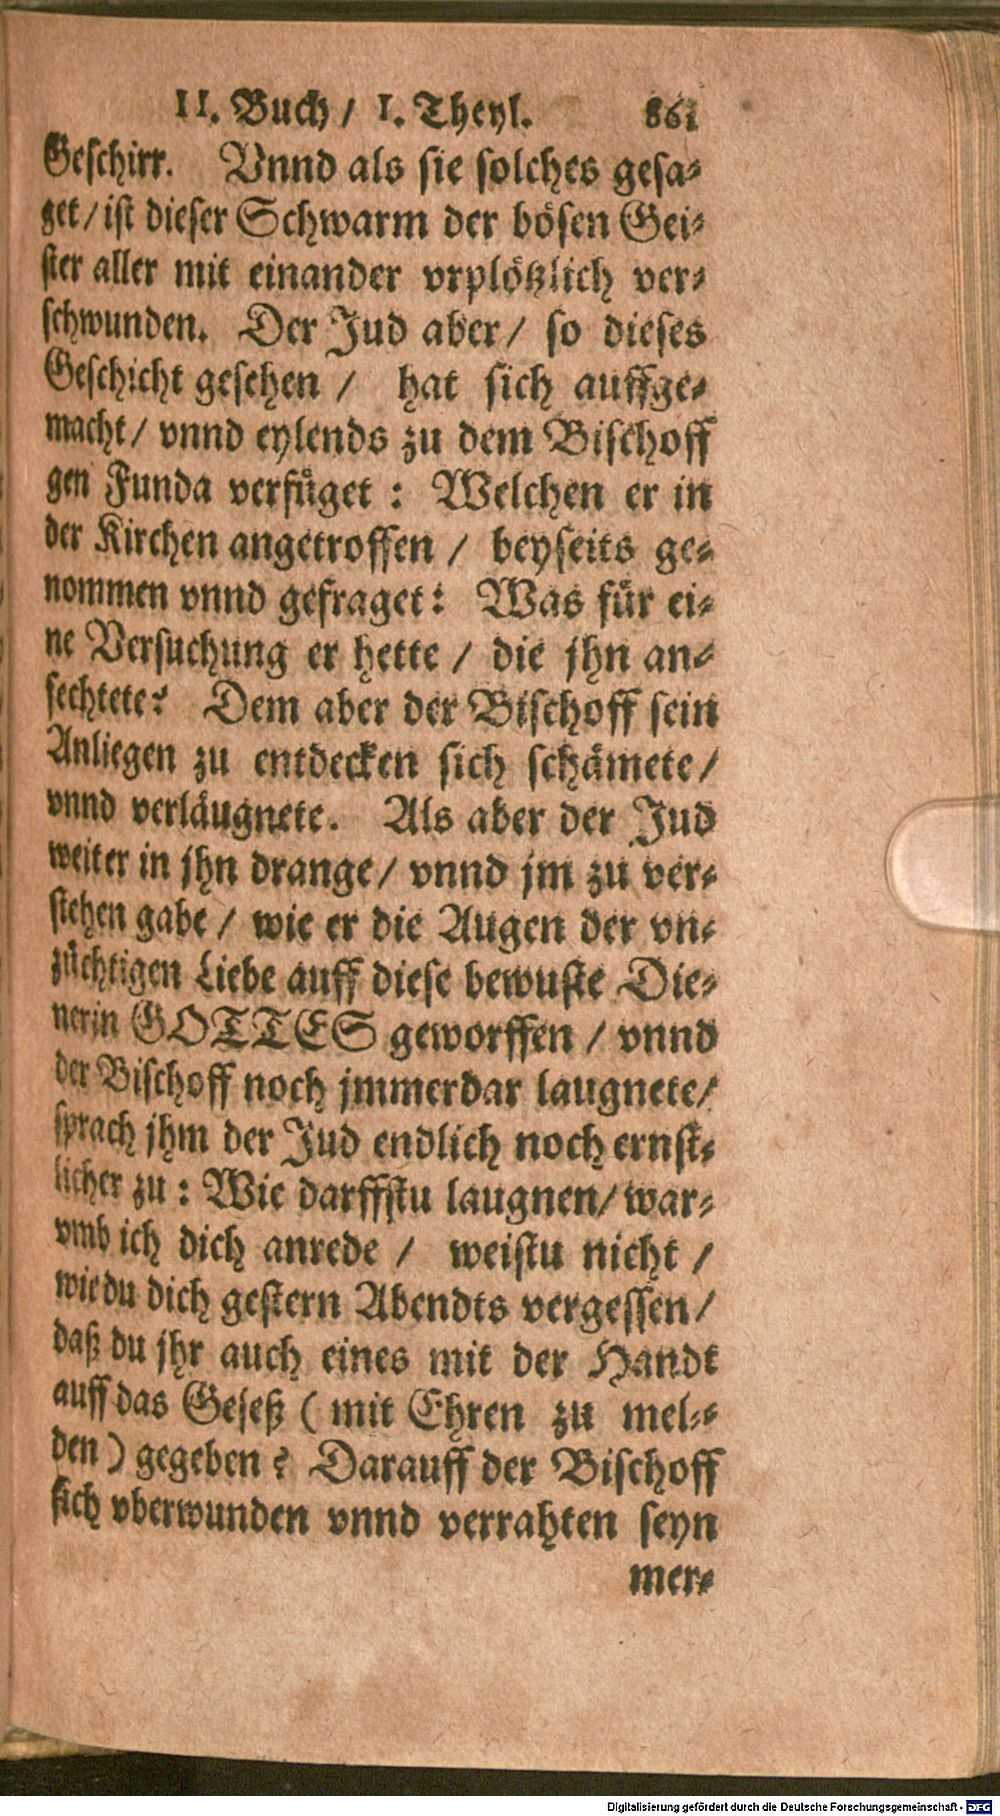 II. Buch / I. Theyl. 861
Geschirr. Vnnd als sie solches gesa-
get / ist dieser Schwarm der bösen Gei-
ster aller mit einander vrplötzlich ver-
schwunden. Der Jud aber / so dieses
Geschicht gesehen / hat sich auffge-
macht / vnnd eylends zu dem Bischoff
gen Funda verfüget : Welchen er in
der Kirchen angetroffen / beyseits ge-
nommen vnnd gefraget : Was für ei-
ne Versuchung er hette / die jhn an-
fechtete? Dem aber der Bischoff sein
Anliegen zu entdecken sich schämete /
vnnd verläugnete. Als aber der Jud
weiter in jhn drange / vnnd jm zu ver-
stehen gabe / wie er die Augen der vn-
züchtigen Liebe auff diese bewuste Die-
nerin GOTTES geworffen / vnnd
der Bischoff noch jmmerdar laugnete /
sprach jhm der Jud endlich noch ernst-
licher zu : Wie darffstu laugnen / war-
vmb ich dich anrede / weistu nicht /
wie du dich gestern Abendts vergessen /
daß du jhr auch eines mit der Handt
auff das Geseß ( mit Ehren zu mel-
den ) gegeben ? Darauff der Bischoff
sich vberwunden vnnd verrahten seyn
mer-
Digitalisierung gefördert durch die Deutsche Forschungsgemeinschaft - DFG